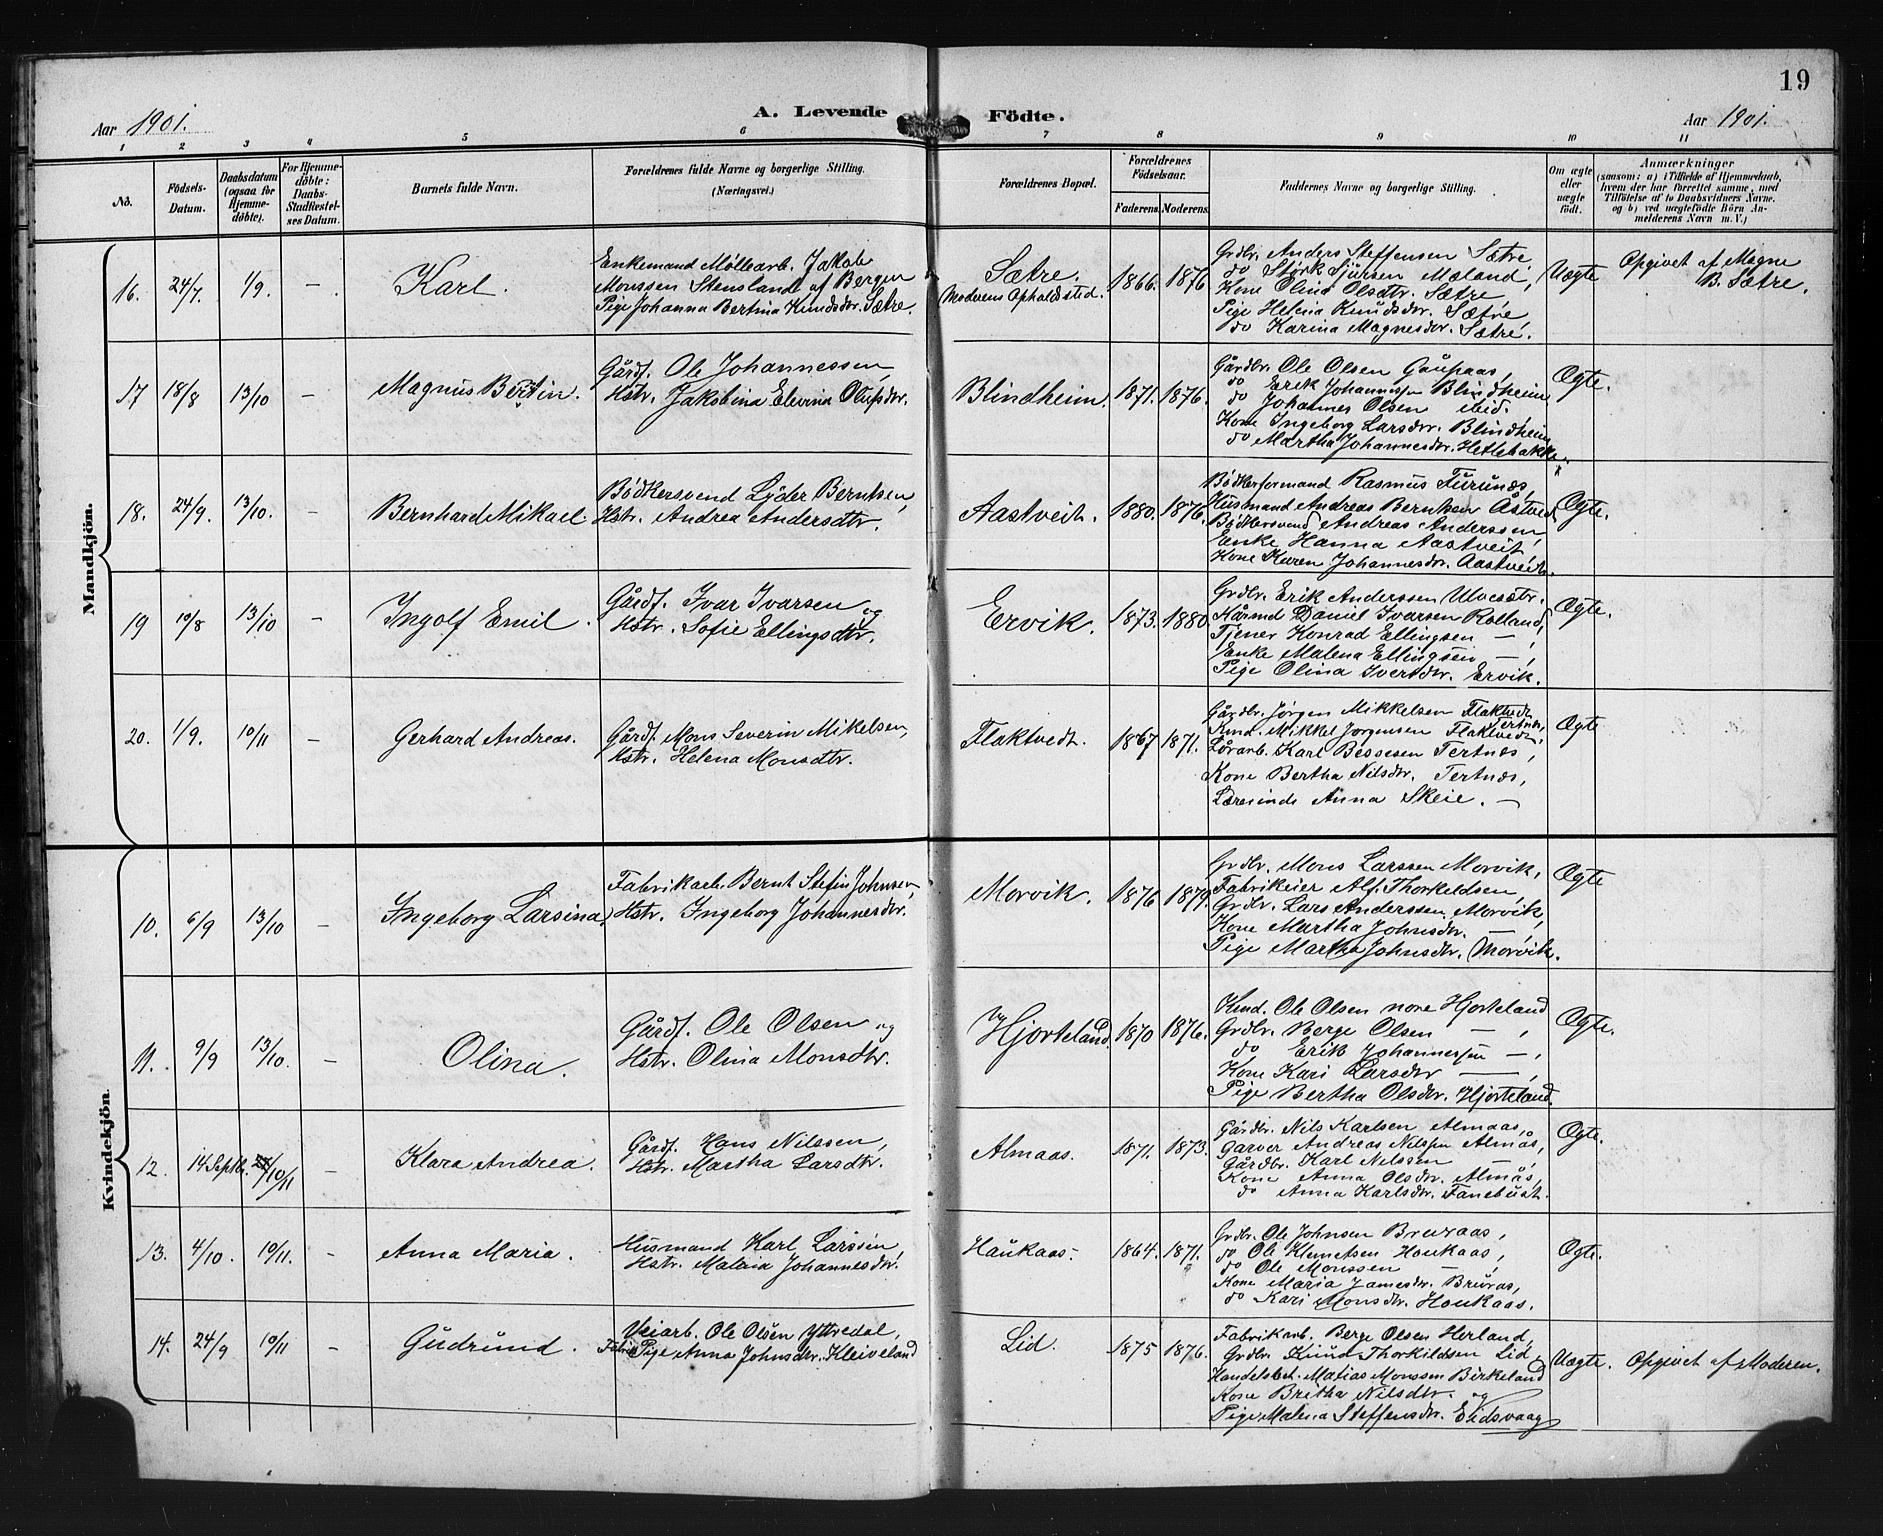 19
Aar 1901.
A. Levende Födte.
Aar 1901.
1 2 3 4 5 6 7 8 9 10 11
No.
Födsels-
Datum.
Daabsdatum
(ogsaa for
Hjemme-
döbte).
For Hjemme-
döbte:
Daabs-
Stadfæstel-
ses Datum.
Barnets fulde Navn.
Forældrenes fulde Navne og borgerlige Stilling.
(Næringsvei.)
Forældrenes Bopæl.
Forældrenes
Födselsaar.
Faderens.
Moderens.
Faddernes Navne og borgerlige Stilling.
Om ægte
eller
uægte
födt.
Anmærkninger
(saasom: a) i Tilfælde af Hjemmedaab,
hvem der har forrettet samme, med
Tilföielse af to Daabsvidners Navne.
og b) ved uægtefödte Börn An-
melderens Navn m. V.)
Mandkjön.
16. 24/7. 1/9. – Karl.
Enkemand Møllearb. Jakob
Monssen Stensland af Bergen
Pige Johanna Bertina Knudsdtr. Sætre.
Sætre.
Moderens Opholdssted.
1866. 1876
Grdbr. Anders Steffensen Sætre
do Størk Sjursen Mæland,
Kone Olina Olsdtr. Sætre,
Pige Helena Knudsdtr. Sætre,
do Karina Magnesdtr. Sætre.
Uægte
Opgivet af Magne
B. Sætre.
17 18/8 13/10 – Magnus Bertin.
Gårdf. Ole Johannessen,
Hstr. Jakobina Elevina Olufsdtr.
Blindheim. 1871. 1876.
Gårdbr. Ole Olsen Gaupaas,
do Erik Johannessen Blindheim
do Johannes Olsen ibid.
Kone Ingeborg Larsdtr. Blindheim
do Martha Johannesdtr. Hetlebakke.
Ægte.
18. 24/9. 13/10. – Bernhard Mikael.
Bödkersvend Lyder Berntsen,
Hstr. Andrea Andersdtr.
Aastveit. 1880. 1876.
Bödkerformand Rasmus Furunes,
Husmand Andreas Berntsen Åstvedt
Bödkersvend Andreas Anderssen,
Enke Hanna Aastveit,
Kone Karen Johannesdtr. Aastveit.
Ægte.
19 10/8 13/10 – Ingolf Emil.
Gårdf. Ivar Ivarsen og
Hstr. Sofie Ellingsdtr.
Ervik. 1873. 1880.
Grdbr. Erik Anderssen Ulvesætr.
Kårmd Daniel Ivarsen Rolland,
Tjener Konrad Ellingsen –,
Enke Malena Ellingsen –,
Pige Olina Iversdtr. Ervik.
Ægte.
20. 1/9. 10/11 – Gerhard Andreas.
Gårdf. Mons Severin Mikelsen,
Hstr. Helena Monsdtr.
Flaktvedt. 1867 1871.
Gårdbr. Jørgen Mikkelsen Flaktvedt
Tertnes,
Kmd. Mikkel Jørgensen Flaktvedt,
Lørarb. Karl Bessesen Tertnes,
Kone Bertha Nilsdtr. Tertnes,
Læresinde Anna Skeie. –
Ægte
Kvindekjön.
10. 6/9 13/10 – Ingeborg Larsina,
Fabrikarb. Bernt Stefin Johnsen,
Hstr. Ingeborg Johannesdtr.
Morvik. 1876 1879.
Grdbr. Mons Larssen Morvik,
Fabrikeier Alf. Thorkildsen,
Grdbr. Lars Anderssen Morvik,
Kone Martha Johnsdtr. –,
Pige Martha Johnsdtr. Morvik.
Ægte
11. 9/9 13/10. – Olina.
Gårdf. Ole Olsen og
Hstr. Olina Monsdtr.
Hjorteland. 1870 1876.
Kmd. Ole Olsen nore Hjorteland
Grdbr. Berge Olsen –,
do Erik Johannessen –,
Kone Kari Larsdtr –,
Pige Bertha Olsdtr. Hjorteland.
Ægte.
12. 14 Septbr. 10/11 – Klara Andrea.
Gårdf. Hans Nilssen,
Hstr. Martha Larsdtr.
Almaas. 1871. 1873.
Gårdbr. Nils Karlsen Almaas,
Garver Andreas Nilssen Almås,
Gårdbr. Karl Nilssen –,
Kone Anna Olsdtr. Almås,
do Anna Karlsdtr. Fanebust.
Ægte.
13. 4/10. 10/11. – Anna Maria.
Husmand Karl Larssen,
Hstr. Malena Johannesdtr.
Haukaas. 1864. 1871.
Grdbr. Ole Johnsen Bruraas,
do Ole Klemetsen Haukaas,
do Ole Monssen –,
Kone Maria Jamesdtr. Bruras,
do Kari Monsdtr. Haukaas.
Ægte.
14. 24/9 10/11 – Gudrund.
Veiarb. Ole Olsen Yttredal,
Fabrik Pige Anna Johnsdtr. Kleiveland
Lid. 1875 1876.
Fabrikarb. Berge Olsen Herland,
Grdbr. Knud Thorkildsen Lid,
Handelsbet. Matias Monssen Birkeland
Kone Britha Nilsdtr. og
Pige Malena Steffensdtr. Eidsvaag
Uægte. Opgivet af Moderen.